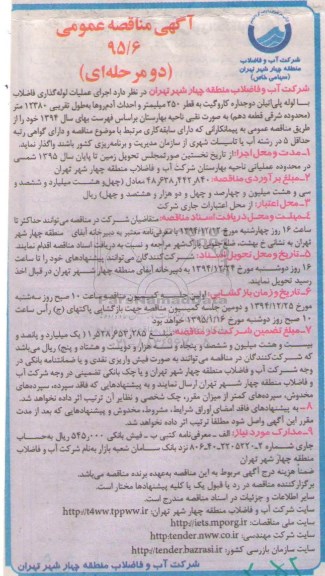 آگهی مناقصه عمومی
۹۵/۶
(دو مرحله‌ای)
شرکت آب و فاضلاب
منطقه چهار شهر تهران
(سهامی خاص)
شرکت آب و فاضلاب منطقه چهار شهر تهران در نظر دارد اجرای عملیات لوله‌گذاری فاضلاب
با لوله پلی‌اتیلن دوجداره کاروگیت به قطر ۲۵۰ میلیمتر و احداث آدم‌روها به‌طول تقریبی ۱۲۳۸۰ متر
(محدوده شرقی قطعه دهم) به صورت نقبی ناحیه بهارستان براساس فهرست بهای سال ۱۳۹۴ خود را از
طریق مناقصه عمومی به پیمانکارانی که دارای سابقه‌کاری مرتبط با موضوع مناقصه و دارای گواهی رتبه
حداقل ۵ در رشته آب یا تاسیسات شهری از سازمان مدیریت و برنامه‌ریزی کشور باشند واگذار نماید.
۱-مدت و محل اجرا: از تاریخ نخستین صورتمجلس تحویل زمین تا پایان سال ۱۳۹۵ شمسی
در محدوده عملیاتی ناحیه بهارستان شرکت آب و فاضلاب منطقه چهار شهر تهران
۲-مبلغ برآوردی مناقصه: ۴۸،۶۳۸،۴۴۲،۸۴۰ معادل (چهل و هشت میلیارد و ششصد و
سی و هشت میلیون و چهارصد و چهل و دو هزار و هشتصد و چهل) ریال
۳-محل اعتبار: از محل اعتبارات جاری شرکت
۴-مهلت و محل دریافت اسناد مناقصه: متقاضیان شرکت در مناقصه می‌توانند حداکثر تا
ساعت ۱۶ روز چهارشنبه مورخ ۱۳۹۴/۱۲/۱۲ با معرفی‌نامه معتبر به دبیرخانه آبفای منطقه چهار شهر
تهران به نشانی خ بهشت، ضلع جنوبی پارک‌شهر مراجعه و نسبت به دریافت اسناد مناقصه اقدام نمایند
۵-تاریخ و محل تحویل اسناد: شرکت‌کنندگان می‌توانند پیشنهادهای خود را تا ساعت
۱۶ روز دوشنبه مورخ ۱۳۹۴/۱۲/۲۴ به دبیرخانه آبفای منطقه چهار شهر تهران در قبال اخذ
رسید تحویل نمایند.
۶-تاریخ و زمان بازگشایی: اولین نشست کمیسیون مناقصه ساعت ۱۰ صبح روز سه‌شنبه
مورخ ۱۳۹۴/۱۲/۲۵ و دومین نشست کمیسیون مناقصه جهت بازگشایی پاکتهای (ج) رأس ساعت
۱۰ صبح روز دوشنبه مورخ ۱۳۹۵/۱/۱۶ خواهد بود.
۷-مبلغ تضمین شرکت در مناقصه: مبلغ ۱،۵۲۸،۶۵۲،۲۸۵ (یک میلیارد و پانصد و
بیست و هشت میلیون و ششصد و پنجاه و دو هزار و دویست و هشتاد و پنج) ریال می‌باشد
که شرکت‌کنندگان در مناقصه می توانند به صورت فیش واریز نقدی و یا ضمانتنامه بانکی در
وجه شرکت آب و فاضلاب منطقه چهار شهر تهران و یا چک بانکی تضمینی در وجه شرکت آب
و فاضلاب منطقه چهار شهر تهران ارسال نمایند و به پیشنهادهایی که فاقد سپرده، سپرده‌های
مخدوش، سپرده‌های کمتر از میزان مقرر، چک شخصی و نظایر آن ترتیب اثر داده نخواهد شد.
۸- به پیشنهادهای فاقد امضای اوراق شرایط، مشروط، مخدوش و پیشنهادهایی که بعد از مدت
مقرر این آگهی واصل شود مطلقا ترتیب اثر داده نخواهد شد.
۹-مدارک مورد نیاز: الف - معرفی‌نامه کتبی ب - فیش بانکی ۵۴۵،۰۰۰ ریال به‌حساب
منطقه چهار شهر تهران
ضمنا هزینه درج آگهی مربوط به این مناقصه به‌عهده برنده مناقصه می‌باشد.
برگزارکننده مناقصه در رد یا قبول یک یا کلیه پیشنهادها مختار است.
سایر اطلاعات و جزئیات در اسناد مناقصه مندرج است.
سایت شرکت آب و فاضلاب منطقه چهار شهر تهران: http://t4ww.tppww.ir
سایت ملی مناقصات: http://iets.mporg.ir
سایت شرکت مهندسی: http:tender.nww.co.ir
سایت سازمان بازرسی کشور: http://tender.bazrasi.ir
شرکت آب و فاضلاب منطقه چهار شهر تهران